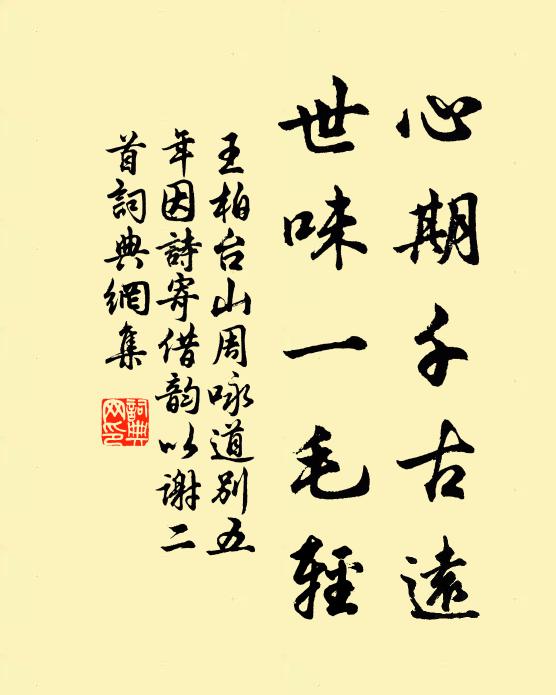 心期千古遠
世味一毛輕
王柏台山周咏道别五
年因詩寄借韵以謝二
首詞典網集
詞典
网印